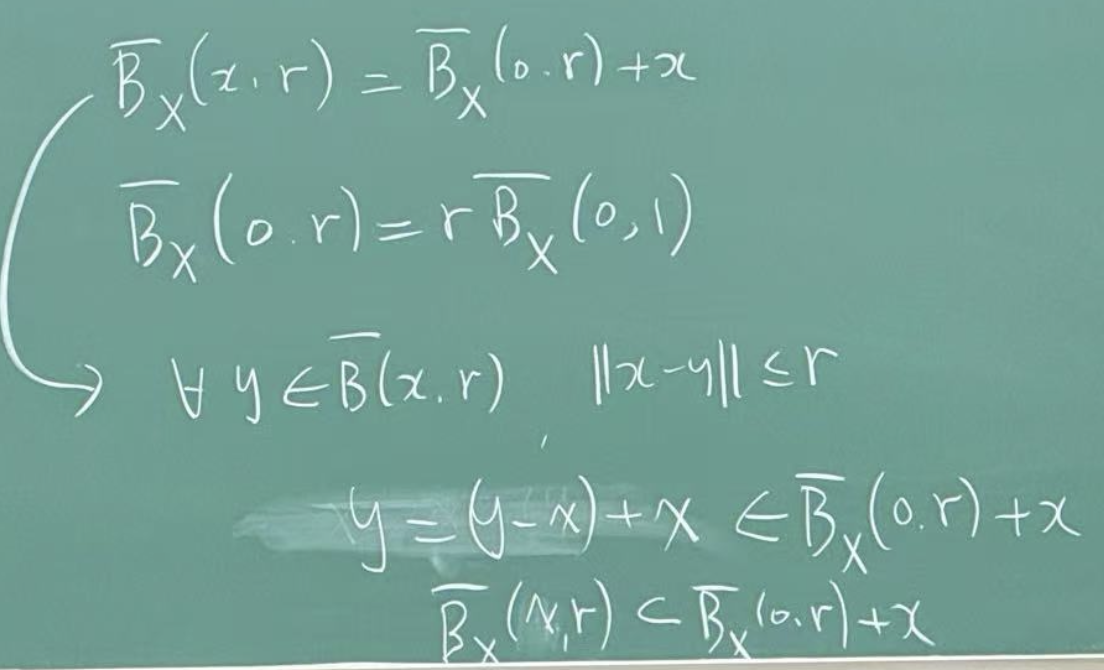 B̅_X(x, r) = B̅_X(0, r) + x
B̅_X(0, r) = r B̅_X(0, 1)
→ ∀ y ∈ B̅(x, r) ‖x-y‖ ≤ r
y = (y-x) + x ∈ B̅_X(0, r) + x
B̅_X(x, r) ⊂ B̅_X(0, r) + x